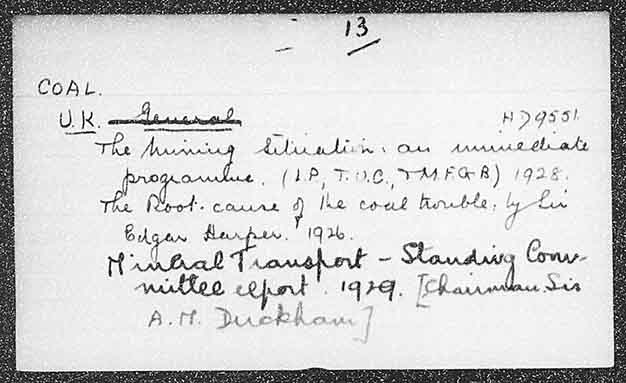 13
COAL.
U.K. General HD9551
The Mining Situation: an immediate
programme. (L.P., T.U.C., & M.F.G.B) 1928.
The Root-cause of the coal trouble, by Sir
Edgar Harper. 1926.
Mineral Transport - Standing Com-
mittee report. 1929. [Chairman Sir
A.M. Duckham]